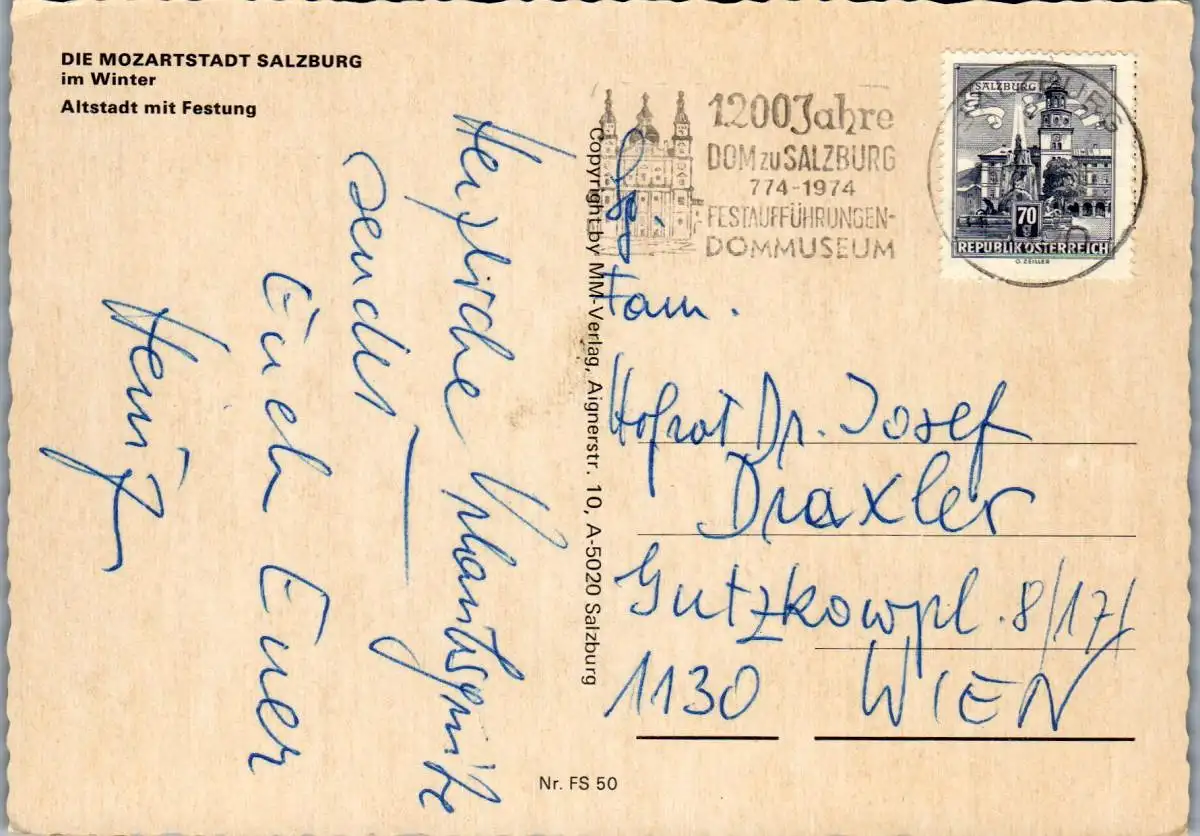 DIE MOZARTSTADT SALZBURG
im Winter
Altstadt mit Festung
1200 Jahre
DOM ZU SALZBURG
774-1974
FESTAUFFÜHRUNGEN-
DOMMUSEUM
SALZBURG
SALZBURG
70 g
REPUBLIK ÖSTERREICH
O. ZEILLER
Herzliche
sendet
Euch Euer
Copyright by MM-Verlag, Aignerstr. 10, A-5020 Salzburg
Fam.
Hofrat Dr. Josef
Draxler
Gutzkowpl. 8/17/
1130 WIEN
Nr. FS 50